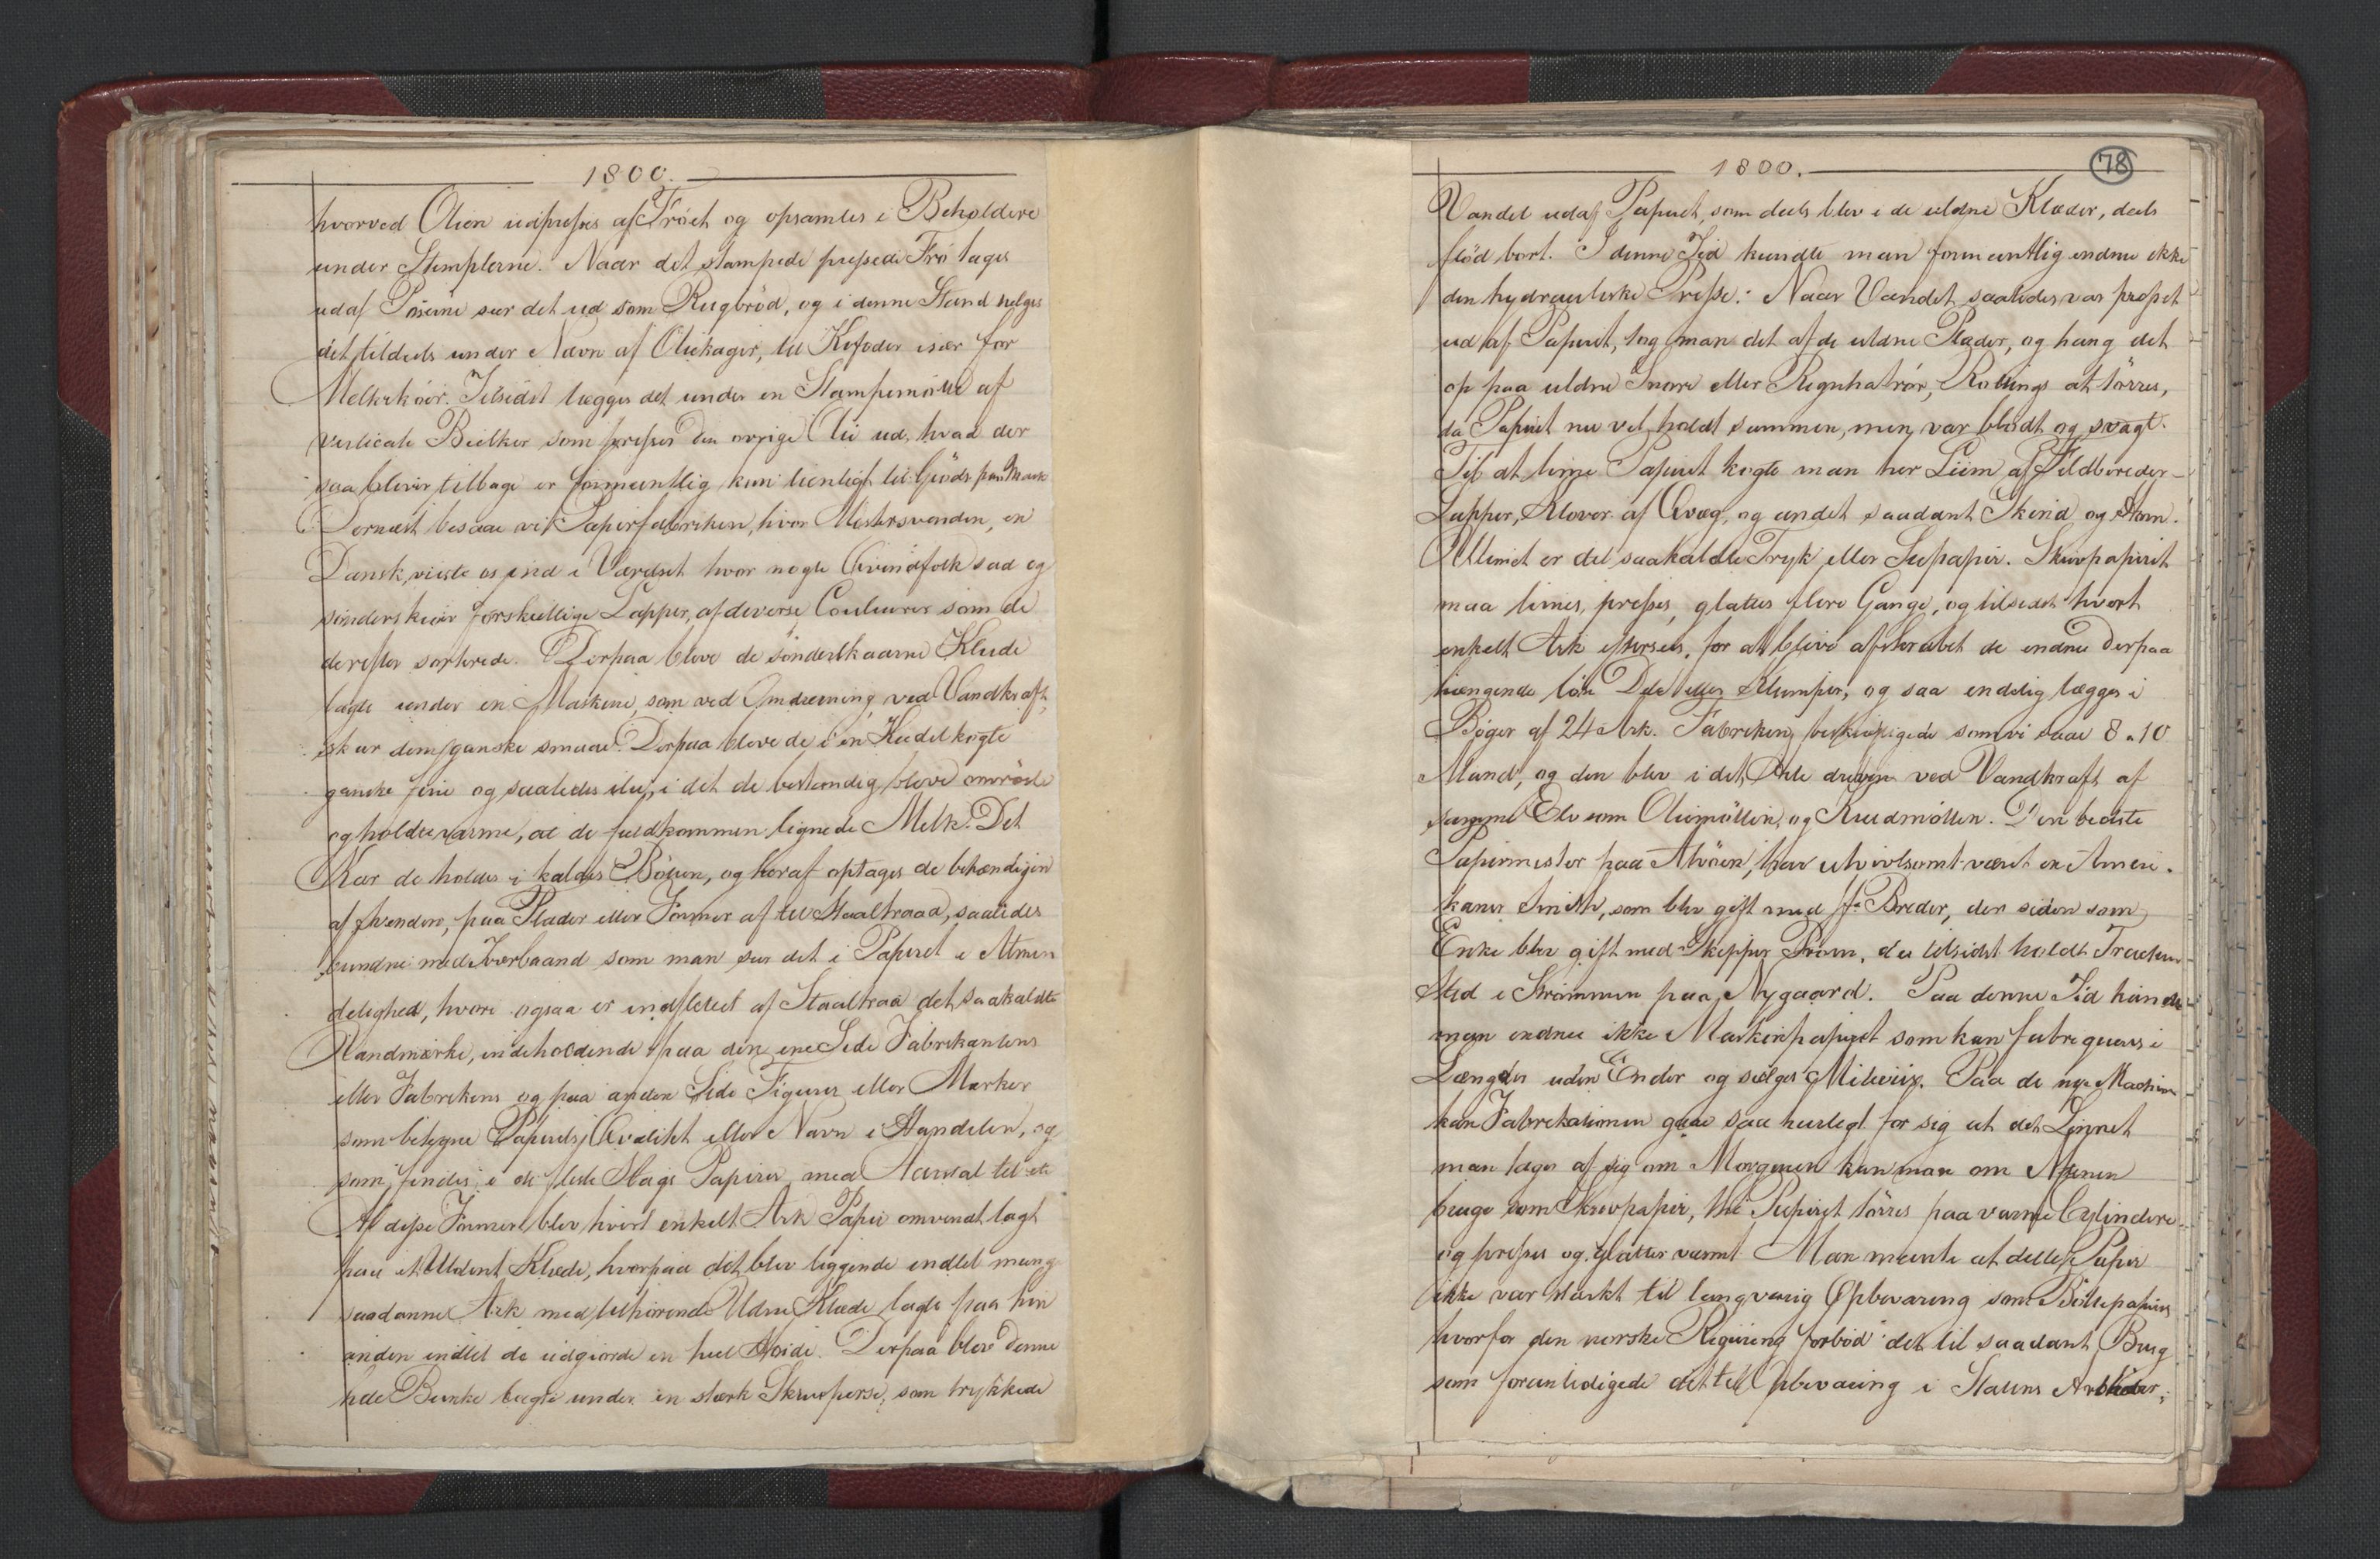 1800.
hvorved Olien udpresses af Frøet og opsamles i Beholdere
under Stemplerne. Naar det stampede pressede Frø tages
udaf Poserne seer det ud som Rugbrød, og i denne Stand selges
det tildeels under Navn af Oliekager, til Kofoder især for
Melkekøer. Tilsidst lægges det under en Stampemølle af
verticale Bielker som presser den øvrige Olie ud, hvad der
saa bliver tilbage er formeentlig kun tienligt til Giøde paa Mark
Dernæst besaae vi Papirfabriken, hvor Mestersvenden, en
Dansk, viiste os ind i Værelset hvor nogle Qvindfolk sad og
sønderskar forskiellige Lapper, af diverse Couleurer som de
derefter sorterede. Derpaa bleve de sønderskaarne Klude
lagte under en Maskine, som ved Omdreening ved Vandkraft,
skar dem ganske smaae. Derpaa bleve de i en Kiedel kogte
ganske fine og saaledes i det de bestandig bleve omrørte
og holdte varme, at de fuldkommen lignede Melk. Det
Kar de holdes i kaldes Bøtten, og heraf optages de behændigen
af Svenden, paa Plader eller Former af Staaltraad, saaledes
bundne med Tverbaand som man seer det i Papiret i Almin
delighed, hvori ogsaa er indflettet af Staaltraa det saakaldte
Vandmærke, indeholdende paa den ene Side Fabrikantens
eller Fabrikens og paa anden Side Figurer eller Mærker
som betegne Papirets Qvalitet eller Navn i Handelen, og
som findes i de fleste Slags Papirer med Aarstal til etc
Af disse Former blev hvert enkelt Ark Papir omvendt lagt
paa et Uldent Klæde, hvorpaa det blev liggende indtil mange
saadanne Ark med tilhørende Uldne Klæde lagte paa hin
anden indtil de udgiorde en heel Høide. Derpaa blev denne
hele Bunke lagte under en stærk Skruepersse, som trykkede
1800.
78
Vandet udaf Papiret, som deels blev i de uldne Klæder, deels
flød bort. I denne Tid kiendte man formeentlig endnu ikke
den hydrauliske Presse. Naar Vandet saaledes var presset
ud af Papiret, tog man det af de uldne Plader, og hang det
op paa uldne Snore eller Rottings at tørres,
da Papiret nu vel holdt sammen, men var blødt og svagt.
Til at lime Papiret kogte man her Liim af Feldbereder-
Lapper, Klover af Qvæg, og andet saadant Skind og Horn.
Ulimet er det saakaldte Tryk eller Suepapir. Skrivpapiret
maa limes, presses, glattes flere Gange, og tilsidst hvert
enkelt Ark efterseés, for at blive afskrabet de endnu derpaa
hængende løse Dele eller Klumper, og saa endelig lægges i
Bøger af 24 Ark. Fabriken beskiæftigede som vi saae 8 a 10
Mand, og den blev i det Hele dreven ved Vandkraft af
samme Elv som Oliemøllen, og Krudmøllen. Den bedste
Papirmester paa Alvøen, har utvivlsomt været en Ameri-
kaner Smith, som blev gift med Jfr Breder, der siden som
Enke blev gift med Skipper Pram, der tilsidst holdt Tracteur
Sted i Strømmen paa Nygaard. Paa denne Tid kiendte
man endnu ikke Maskinpapiret som kan fabriqueres i
Længder uden Ender og sælges Mileviis. Paa de nye Machiner
kan Fabrikationen gaae saa hurtigt for sig at det Linnet
man tager af sig om Morgenen kan man om Aftenen
bruge som Skrivpapir, thi Papiret tørres paa varme Cylindere
og presses og glattes varmt. Man meente at dette Papir
ikke var stærkt til langvarig Opbevaring som Bøttepapiret
hvorfor den norske Regiering forbød det til saadant Brug
som foranledigede det til Opbevaring i Statens Arkiver;